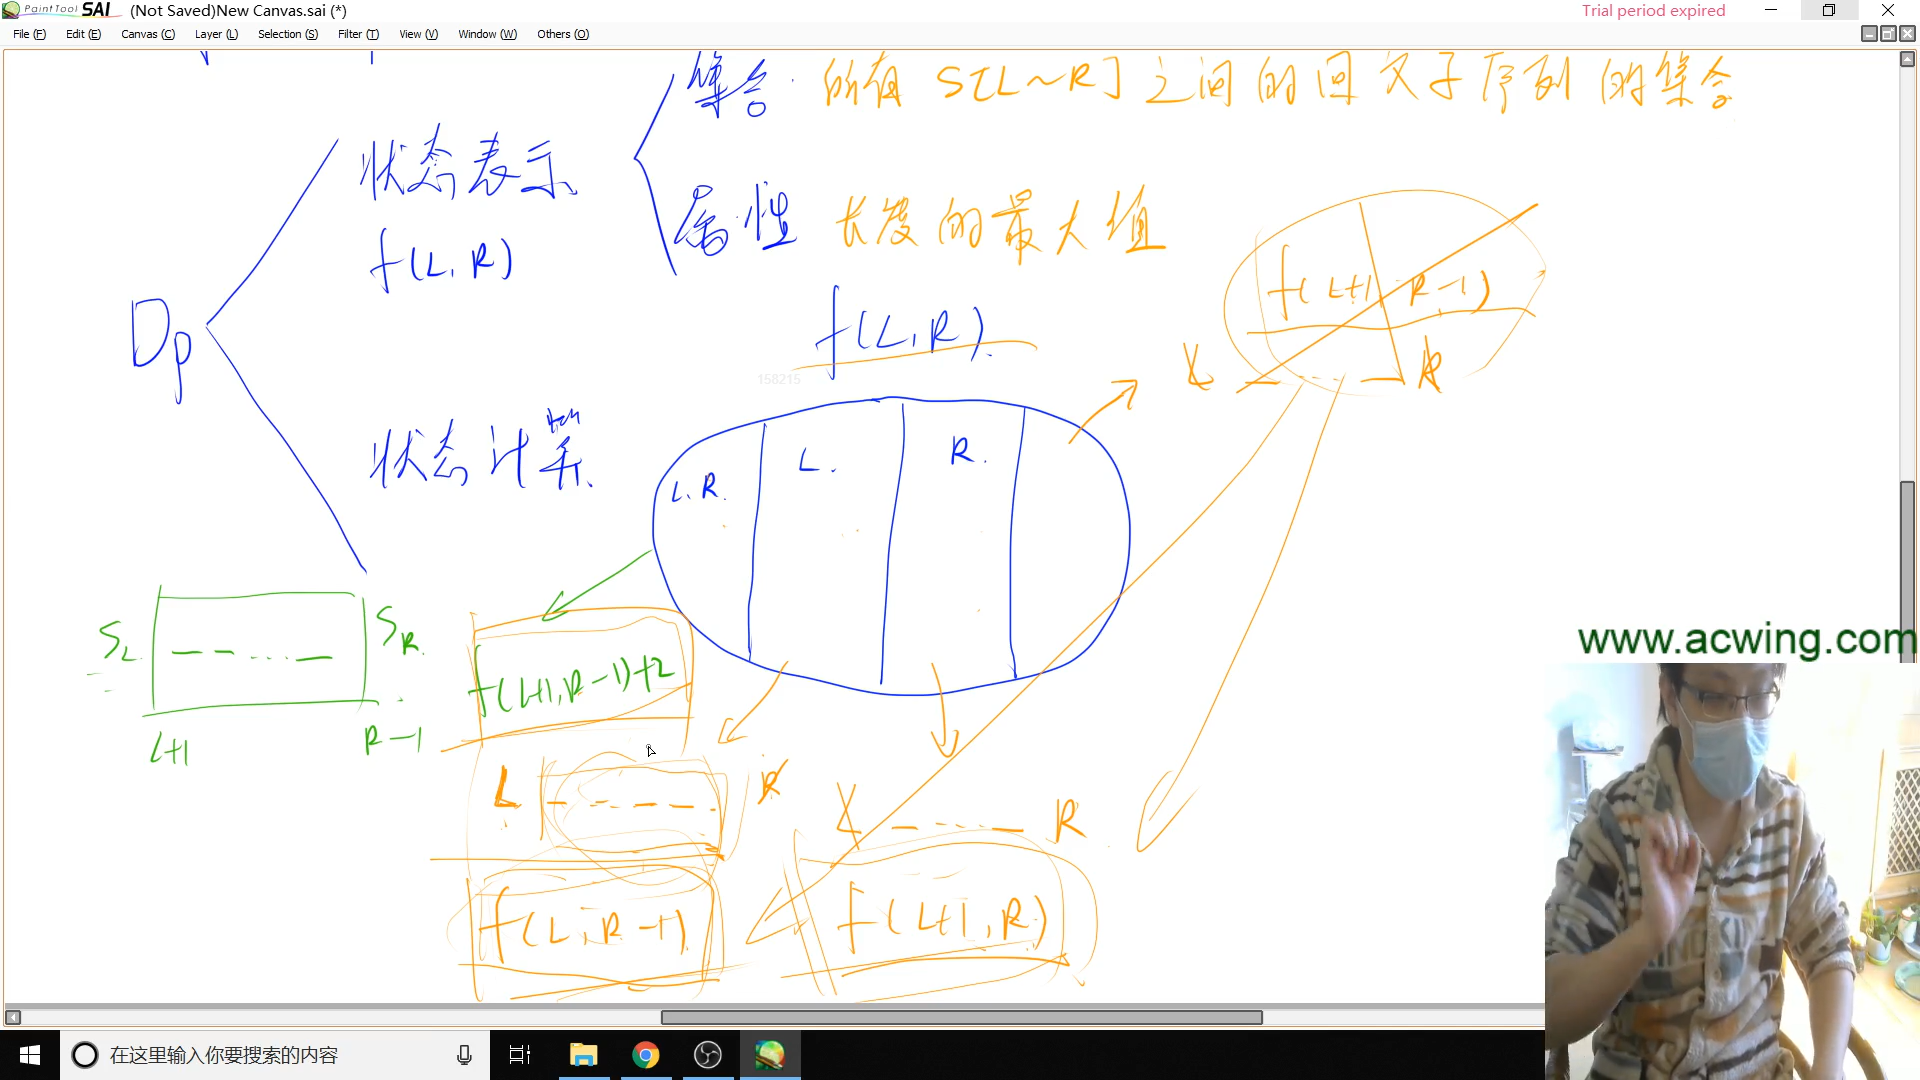 PaintTool SAI (Not Saved)New Canvas.sai (*) Trial period expired
File (F) Edit (E) Canvas (C) Layer (L) Selection (S) Filter (T) View (V) Window (W) Others (O)
集合 所有 S[L~R]之间的回文子序列的集合
状态表示
f(L,R)
属性 长度的最大值
f(L+1, R-1)
Dp
f(L,R)
L R
158215
状态计算
L.R. L. R.
SL SR
f(L+1,R-1)+2
L+1 R-1
L R
L R
f(L,R-1) f(L+1,R)
www.acwing.com
在这里输入你要搜索的内容